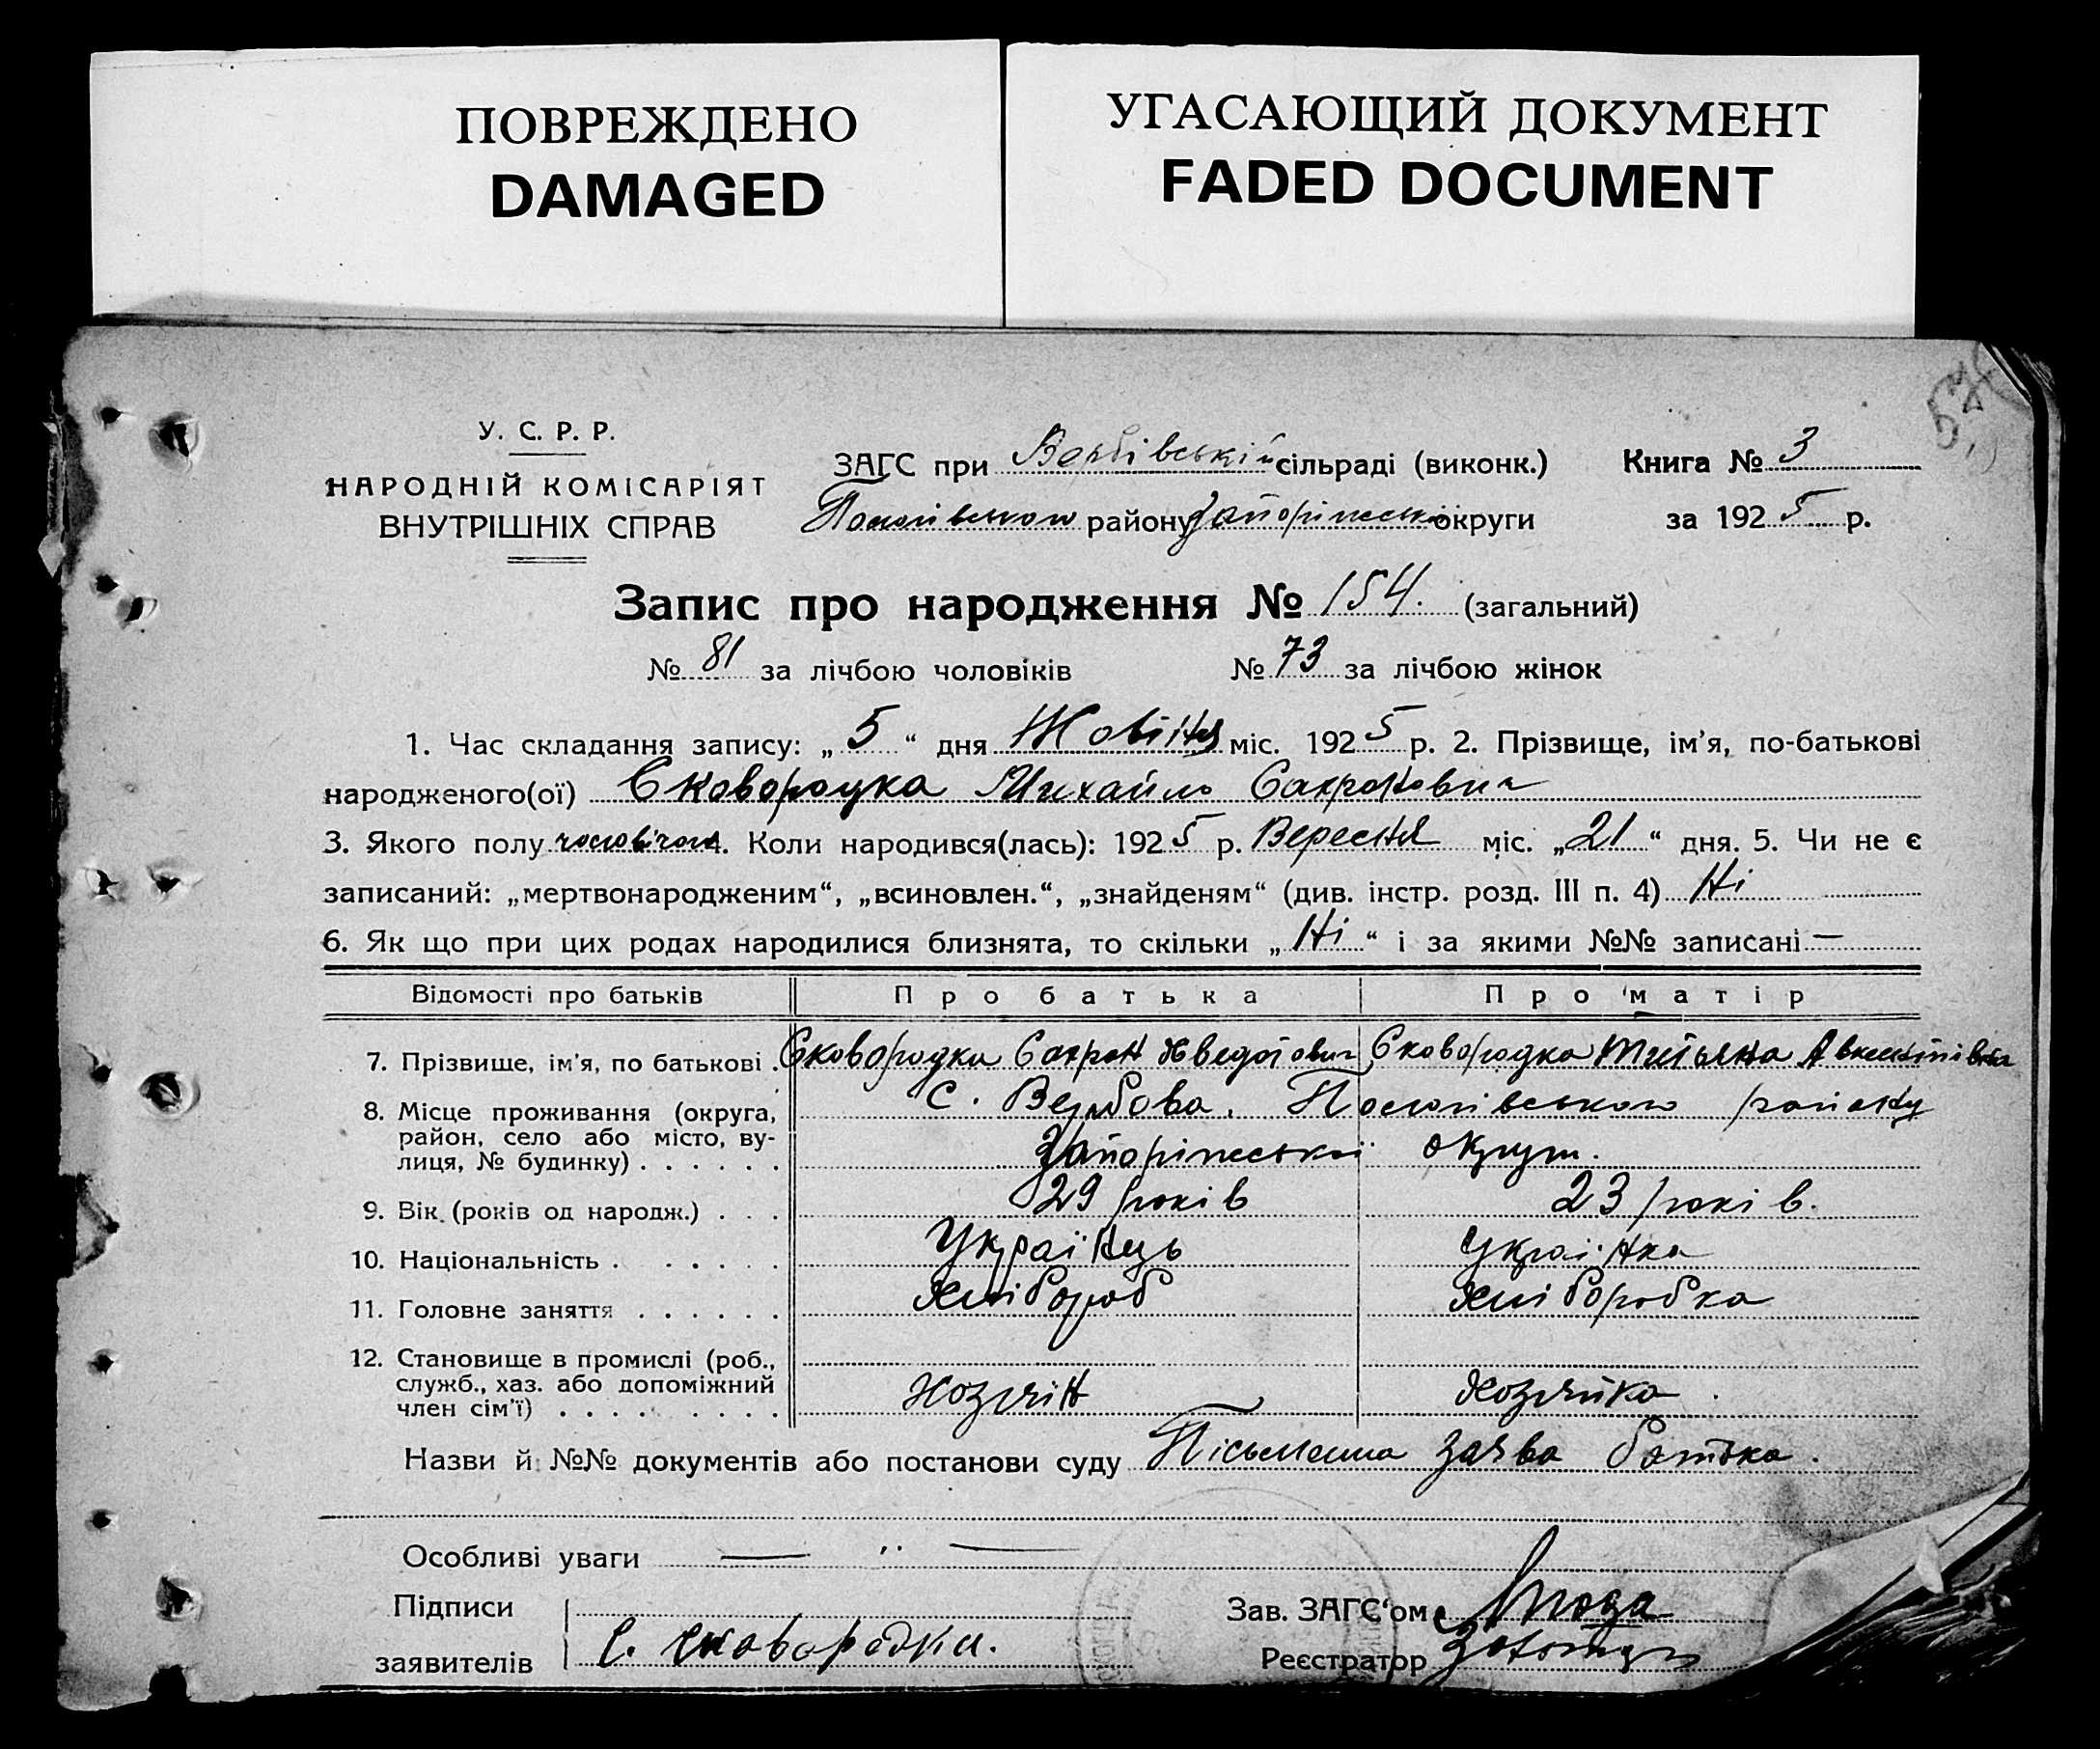 ПОВРЕЖДЕНО
DAMAGED
УГАСАЮЩИЙ ДОКУМЕНТ
FADED DOCUMENT
У. С. Р. Р.
НАРОДНІЙ КОМІСАРІЯТ
ВНУТРІШНІХ СПРАВ
ЗАГС при Вербівській сільраді (виконк.)
Пологівського району Запоріжської округи
Книга № 3
за 1925 р.
Запис про народження № 154. (загальний)
№ 81 за лічбою чоловіків № 73 за лічбою жінок
1. Час складання запису: „5“ дня Жовтня міс. 1925 р. 2. Прізвище, ім'я, по-батькові
народженого(ої) Сковородка Михайло Сахронович
3. Якого полу чоловічого 4. Коли народився(лась): 1925 р. Вересня міс. „21“ дня. 5. Чи не є
записаний: „мертвонародженим“, „всиновлен.“, „знайденям“ (див. інстр. розд. III п. 4) Ні
6. Як що при цих родах народилися близнята, то скільки „Ні“ і за якими №№ записані —
Відомості про батьків Про батька Про матір
7. Прізвище, ім'я, по батькові . Сковородка Сахрон Хведотович Сковородка Титьяна
8. Місце проживання (округа, район, село або місто, вулиця, № будинку) . . . . . . С. Вербова. Пологівського району
Запоріжської округи.
9. Вік (років од народж.) . . . 29 років 23 років.
10. Національність . . . . . . Українець Українка
11. Головне заняття . . . . . . Хлібороб Хлібороbка
12. Становище в промислі (роб., служб., хаз. або допоміжний член сім'ї) . . . . . . . . Хозяїн Хозяйка.
Назви й №№ документів або постанови суду Пісьменна заява батька.
Особливі уваги — " —
Підписи
заявителів С. Сковородка.
Зав. ЗАГС'ом
Реєстратор